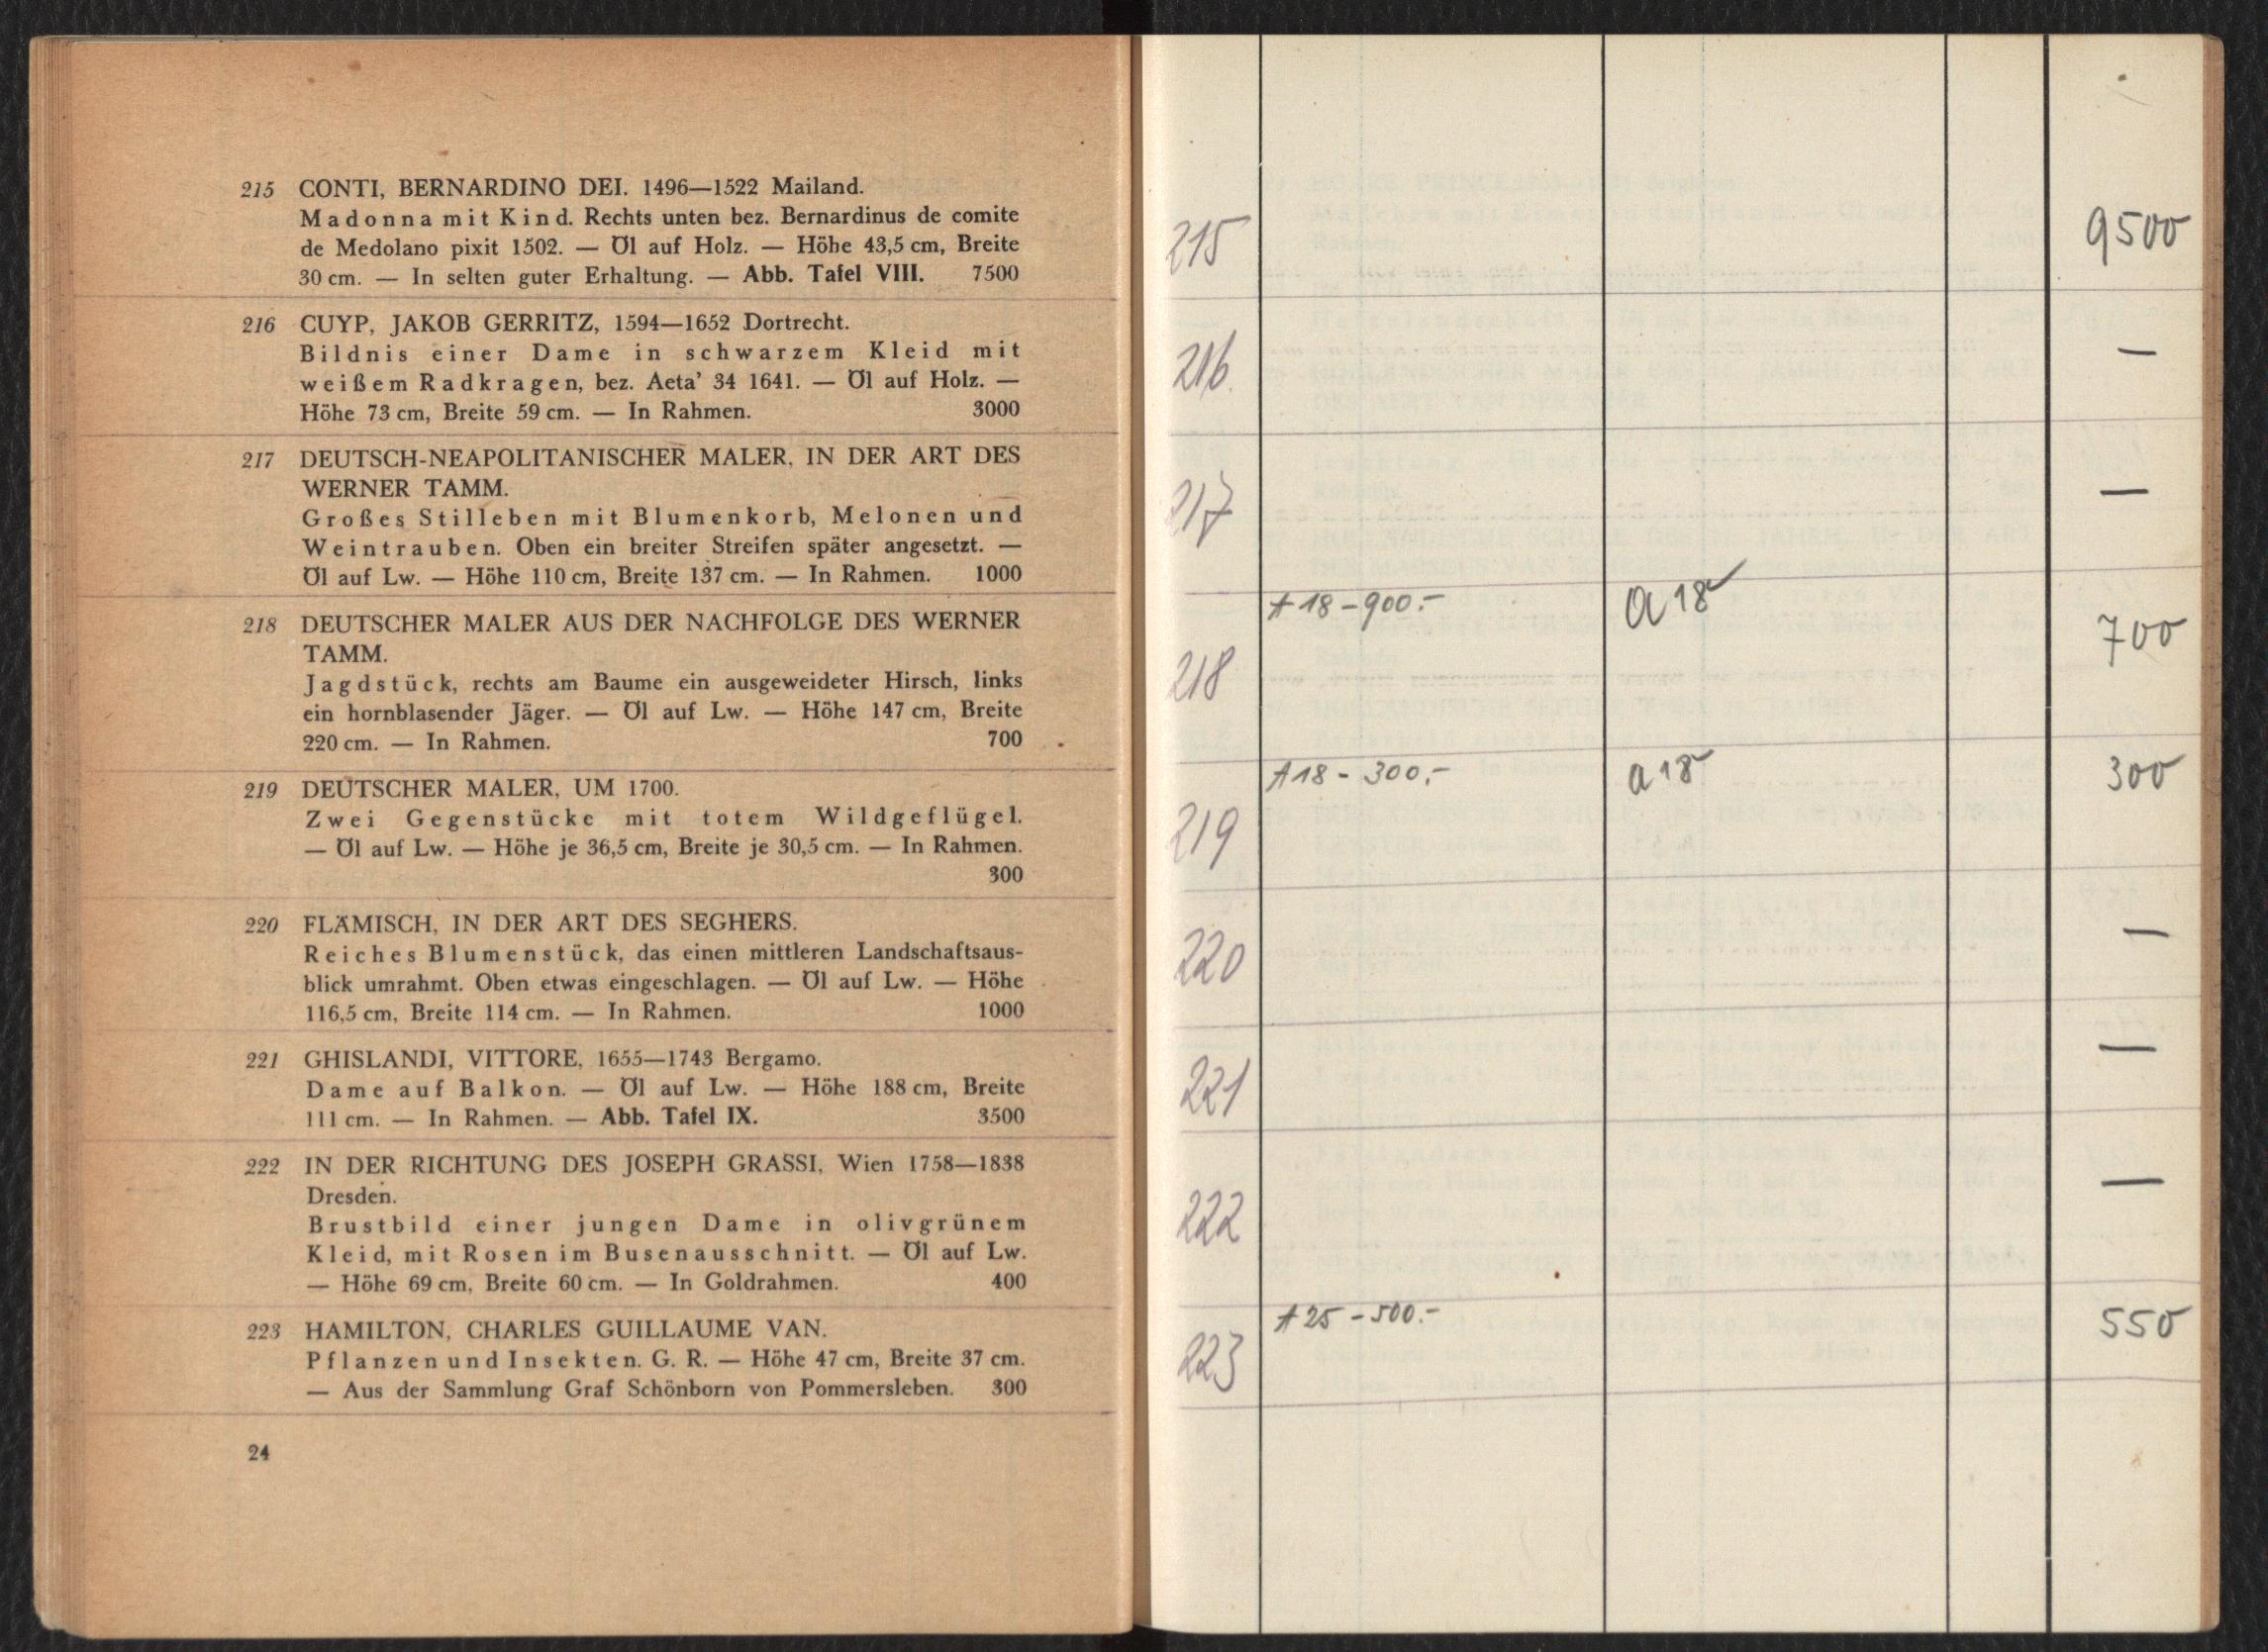 215 CONTI, BERNARDINO DEI. 1496—1522 Mailand.
Madonna mit Kind. Rechts unten bez. Bernardinus de comite
de Medolano pixit 1502. — Öl auf Holz. — Höhe 43,5 cm, Breite
30 cm. — In selten guter Erhaltung. — Abb. Tafel VIII. 7500
216 CUYP, JAKOB GERRITZ, 1594—1652 Dortrecht.
Bildnis einer Dame in schwarzem Kleid mit
weißem Radkragen, bez. Aeta' 34 1641. — Öl auf Holz. —
Höhe 73 cm, Breite 59 cm. — In Rahmen. 3000
217 DEUTSCH-NEAPOLITANISCHER MALER, IN DER ART DES
WERNER TAMM.
Großes Stilleben mit Blumenkorb, Melonen und
Weintrauben. Oben ein breiter Streifen später angesetzt. —
Öl auf Lw. — Höhe 110 cm, Breite 137 cm. — In Rahmen. 1000
218 DEUTSCHER MALER AUS DER NACHFOLGE DES WERNER
TAMM.
Jagdstück, rechts am Baume ein ausgeweideter Hirsch, links
ein hornblasender Jäger. — Öl auf Lw. — Höhe 147 cm, Breite
220 cm. — In Rahmen. 700
219 DEUTSCHER MALER, UM 1700.
Zwei Gegenstücke mit totem Wildgeflügel.
— Öl auf Lw. — Höhe je 36,5 cm, Breite je 30,5 cm. — In Rahmen.
300
220 FLÄMISCH, IN DER ART DES SEGHERS.
Reiches Blumenstück, das einen mittleren Landschaftsaus-
blick umrahmt. Oben etwas eingeschlagen. — Öl auf Lw. — Höhe
116,5 cm, Breite 114 cm. — In Rahmen. 1000
221 GHISLANDI, VITTORE, 1655—1743 Bergamo.
Dame auf Balkon. — Öl auf Lw. — Höhe 188 cm, Breite
111 cm. — In Rahmen. — Abb. Tafel IX. 3500
222 IN DER RICHTUNG DES JOSEPH GRASSI, Wien 1758—1838
Dresden.
Brustbild einer jungen Dame in olivgrünem
Kleid, mit Rosen im Busenausschnitt. — Öl auf Lw.
— Höhe 69 cm, Breite 60 cm. — In Goldrahmen. 400
223 HAMILTON, CHARLES GUILLAUME VAN.
Pflanzen und Insekten. G. R. — Höhe 47 cm, Breite 37 cm.
— Aus der Sammlung Graf Schönborn von Pommersleben. 300
24
215 9500
216 —
217 —
218 A 18 - 900.- a 18 700
219 A 18 - 300.- a 18 300
220 —
221 —
222 —
223 A 25 - 500.- 550